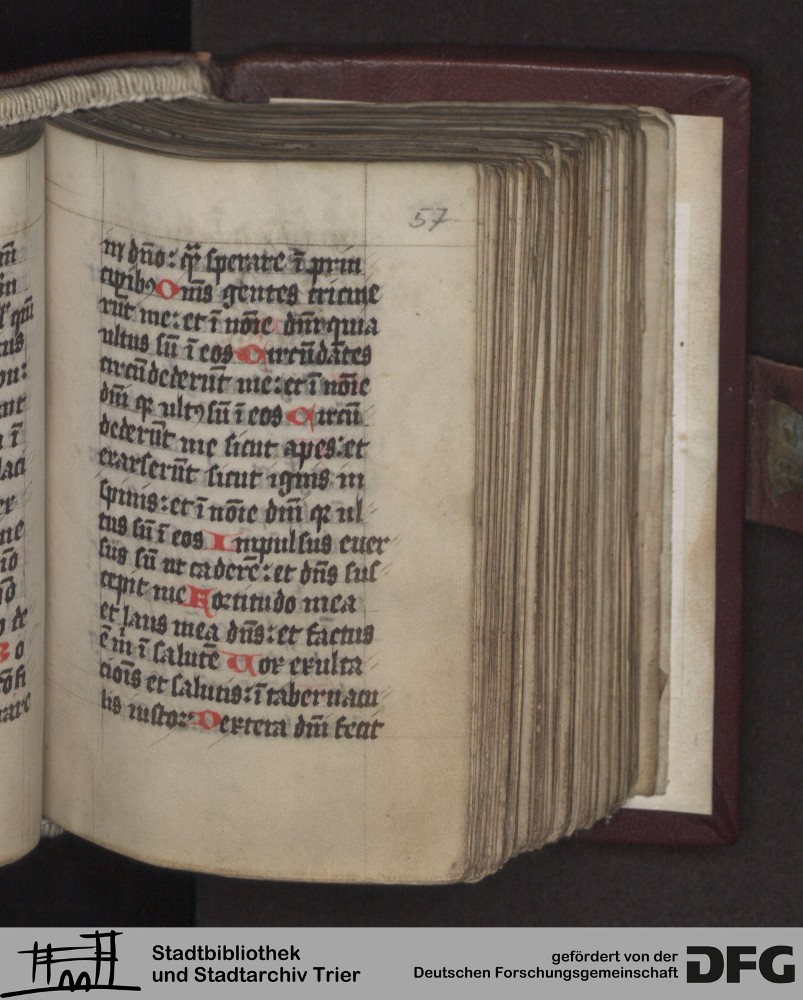 57
in dn̄o: q̄ꝫ sperare ī prin
cipibꝰ Om̄s gentes circuie
rūt me: et ī nōie dn̄i quia
ultus sū ī eos Circūdātes
circūdederūt me: et ī nōie
dn̄i qꝛ ultꝰ sū ī eos Circū
dederūt me sicut apes: et
exarserūt sicut ignis in
spinis: et ī nōie dn̄i qꝛ ul
tus sū ī eos Impulsus euer
sus sū ut caderē: et dn̄s sus
cepit me Fortitudo mea
et laus mea dn̄s: et factus
ē m̄ ī salutē Vox exulta
cioīs et salutis: ī tabernacu
lis iustoꝝ Dextera dn̄i fecit
Stadtbibliothek
und Stadtarchiv Trier
gefördert von der
Deutschen Forschungsgemeinschaft
DFG